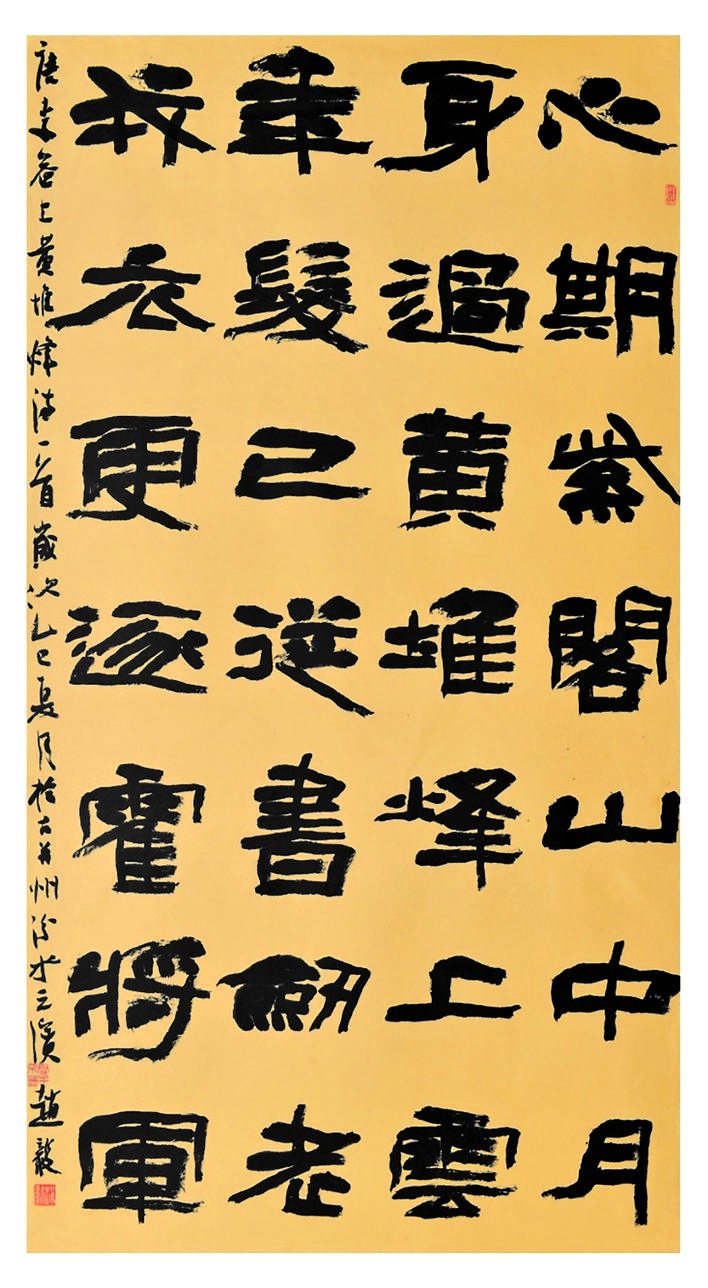 心期紫閣山中月
身過黄堆烽上雲
年髮已從書劒老
戎衣更逐霍將軍
唐李益上黄堆烽詩一首歲次乙巳夏月於古并州汾水之濱
趙